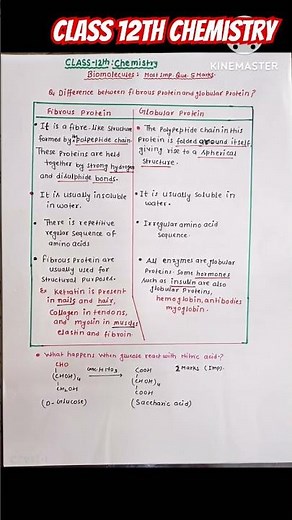 CLASS 12TH CHEMISTRY
KINEMASTER
CLASS-12th: Chemistry
Biomolecules: Most Imp. Que. 5 Marks.
Q. Difference between fibrous protein and globular protein?
Fibrous Protein
It is a fibre-like structure
formed by polypeptide chain.
These Proteins are held
together by strong hydrogen
and disulphide bonds.
It is usually insoluble
in water.
There is repetitive
regular sequence of
amino acids
Fibrous Protein are
usually used for
Structural purposes.
Ex. Keratin is present
in nails and hair,
collagen in tendons,
and myosin in muscles
elastin and fibroin
Globular Protein
The Polypeptide chain in this
protein is folded around itself,
giving rise to a spherical
structure.
It is usually soluble in
water.
Irregular amino acid
sequence.
All enzymes are globular
Proteins. Some hormones
such as insulin are also
globular Proteins,
hemoglobin, antibodies
myoglobin.
What happens when glucose react with nitric acid?
2 Marks (Imp).
CHO
(CHOH)4
CH2OH
(D-Glucose)
COOH
(CHOH)4
COOH
(Saccharic acid)